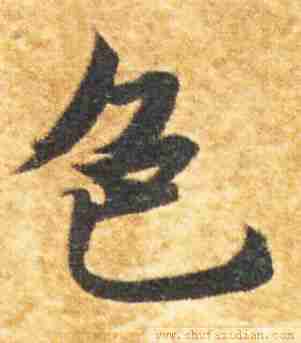 色
www.shufazidian.com